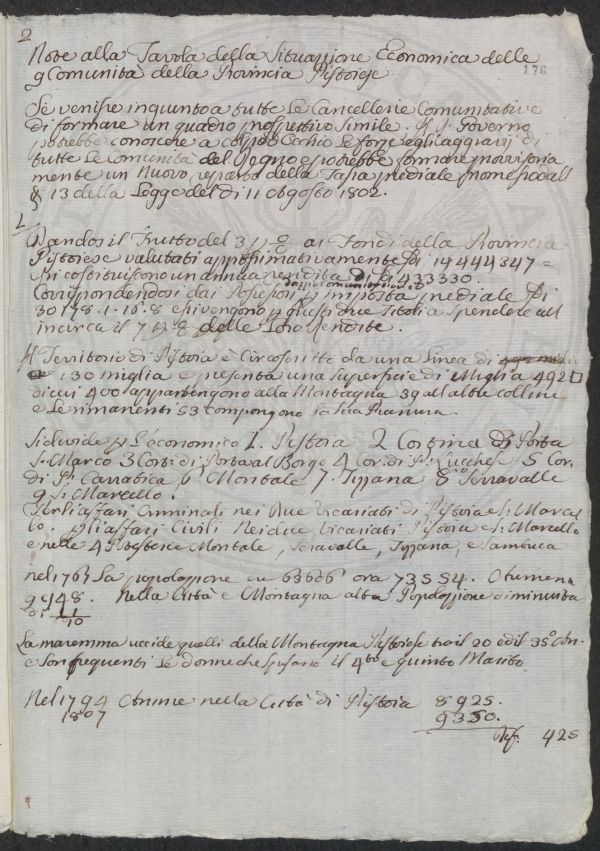 2
Note alla Tavola della Situazione Economica delle
9 Comunità della Provincia Pistoiese
176
Se venisse ingiunto a tutte Le Cancellerie Comunitative
di formare un quadro prospettivo simile. Il Governo
potrebbe conoscere a colpo d'occhio Le forze egli aggravj di
tutte Le Comunità del Regno e potrebbe formare provvisoria
mente un Nuovo reparto della Tassa prediale promesso dall
§ 13 della Legge del dì 11 Agosto 1802.
Dandosi il Frutto del 3 p % ai Fondi della Provincia
Pistoiese valutati approssimativamente 14444347=
si costituiscono un annua rendita di 433330.
Corrispondendosi dai Possessori p imposta prediale
30178.1.16.8 essi vengono p questi due Titoli a spendere all
incirca il 7 p % delle Loro Rendite.
Il Territorio di Pistoia è Circoscritto da una Linea di
130 miglia e presenta una superficie di Miglia 492 □
di cui 400 appartengono alla Montagna 39 all alte colline
e Le rimanenti 53 compongono La sua Pianura.
Si divide p L'economico 1. Pistoia 2 Cortine di Porta
S. Marco 3 Cort: di Porta al Borgo 4 Cor. di Pa: Lucchese 5 Cor.
di Pa Carratica 6 Montale 7. Tizzana 8 Serravalle
9 S. Marcello.
Per li affari Criminali nei due Vicariati di Pistoia e S: Marcel
lo. p gli affari Civili Nei due Vicariati Pistoia e S: Marcello
e nelle 4 Potesterie Montale, Seravalle, Tizzana, e Sambuca
nel 1767 La popolazione era 63606 ora 73554. Aumento
9948. Nella Città e Montagna alta Popolazione diminuita
di 1/10
La maremma uccide quelli della Montagna Pistoiese tra il 20 ed il 35° an.
e son frequenti Le donne che sposano il 4to e quinto Marito.
Nel 1794 Anime nella Città di Pistoia 8925.
1807 9350.
Dif. 425